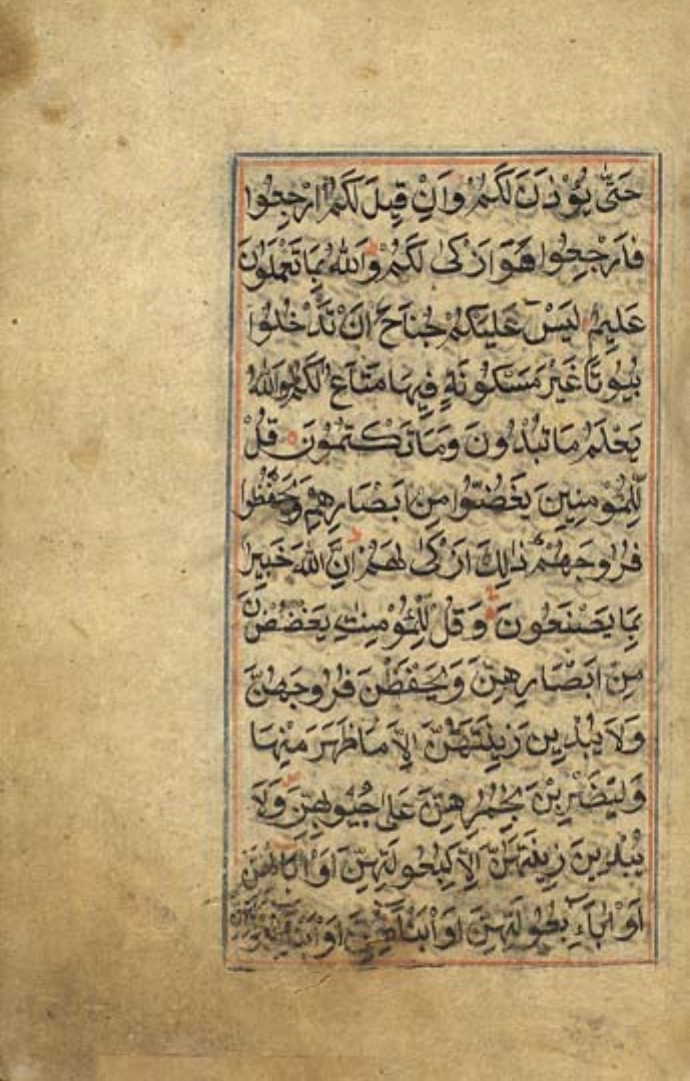 حَتّٰى يُؤْذَنَ لَكُمْ وَاِنْ قِيلَ لَكُمُ ارْجِعُوا
فَارْجِعُوا هُوَ اَزْكٰى لَكُمْ وَاللهُ بِمَا تَعْمَلُونَ
عَلِيمٌ لَيْسَ عَلَيْكُمْ جُنَاحٌ اَنْ تَدْخُلُوا
بُيُوتًا غَيْرَ مَسْكُونَةٍ فِيهَا مَتَاعٌ لَكُمْ وَاللهُ
يَعْلَمُ مَا تُبْدُونَ وَمَا تَكْتُمُونَ قُلْ
لِلْمُؤْمِنِينَ يَغُضُّوا مِنْ اَبْصَارِهِمْ وَيَحْفَظُوا
فُرُوجَهُمْ ذٰلِكَ اَزْكٰى لَهُمْ اِنَّ اللهَ خَبِيرٌ
بِمَا يَصْنَعُونَ وَقُلْ لِلْمُؤْمِنٰتِ يَغْضُضْنَ
مِنْ اَبْصَارِهِنَّ وَيَحْفَظْنَ فُرُوجَهُنَّ
وَلَا يُبْدِينَ زِينَتَهُنَّ اِلَّا مَا ظَهَرَ مِنْهَا
وَلْيَضْرِبْنَ بِخُمُرِهِنَّ عَلٰى جُيُوبِهِنَّ وَلَا
يُبْدِينَ زِينَتَهُنَّ اِلَّا لِبُعُولَتِهِنَّ اَوْ اٰبَائِهِنَّ
اَوْ اٰبَاءِ بُعُولَتِهِنَّ اَوْ اَبْنَائِهِنَّ اَوْ